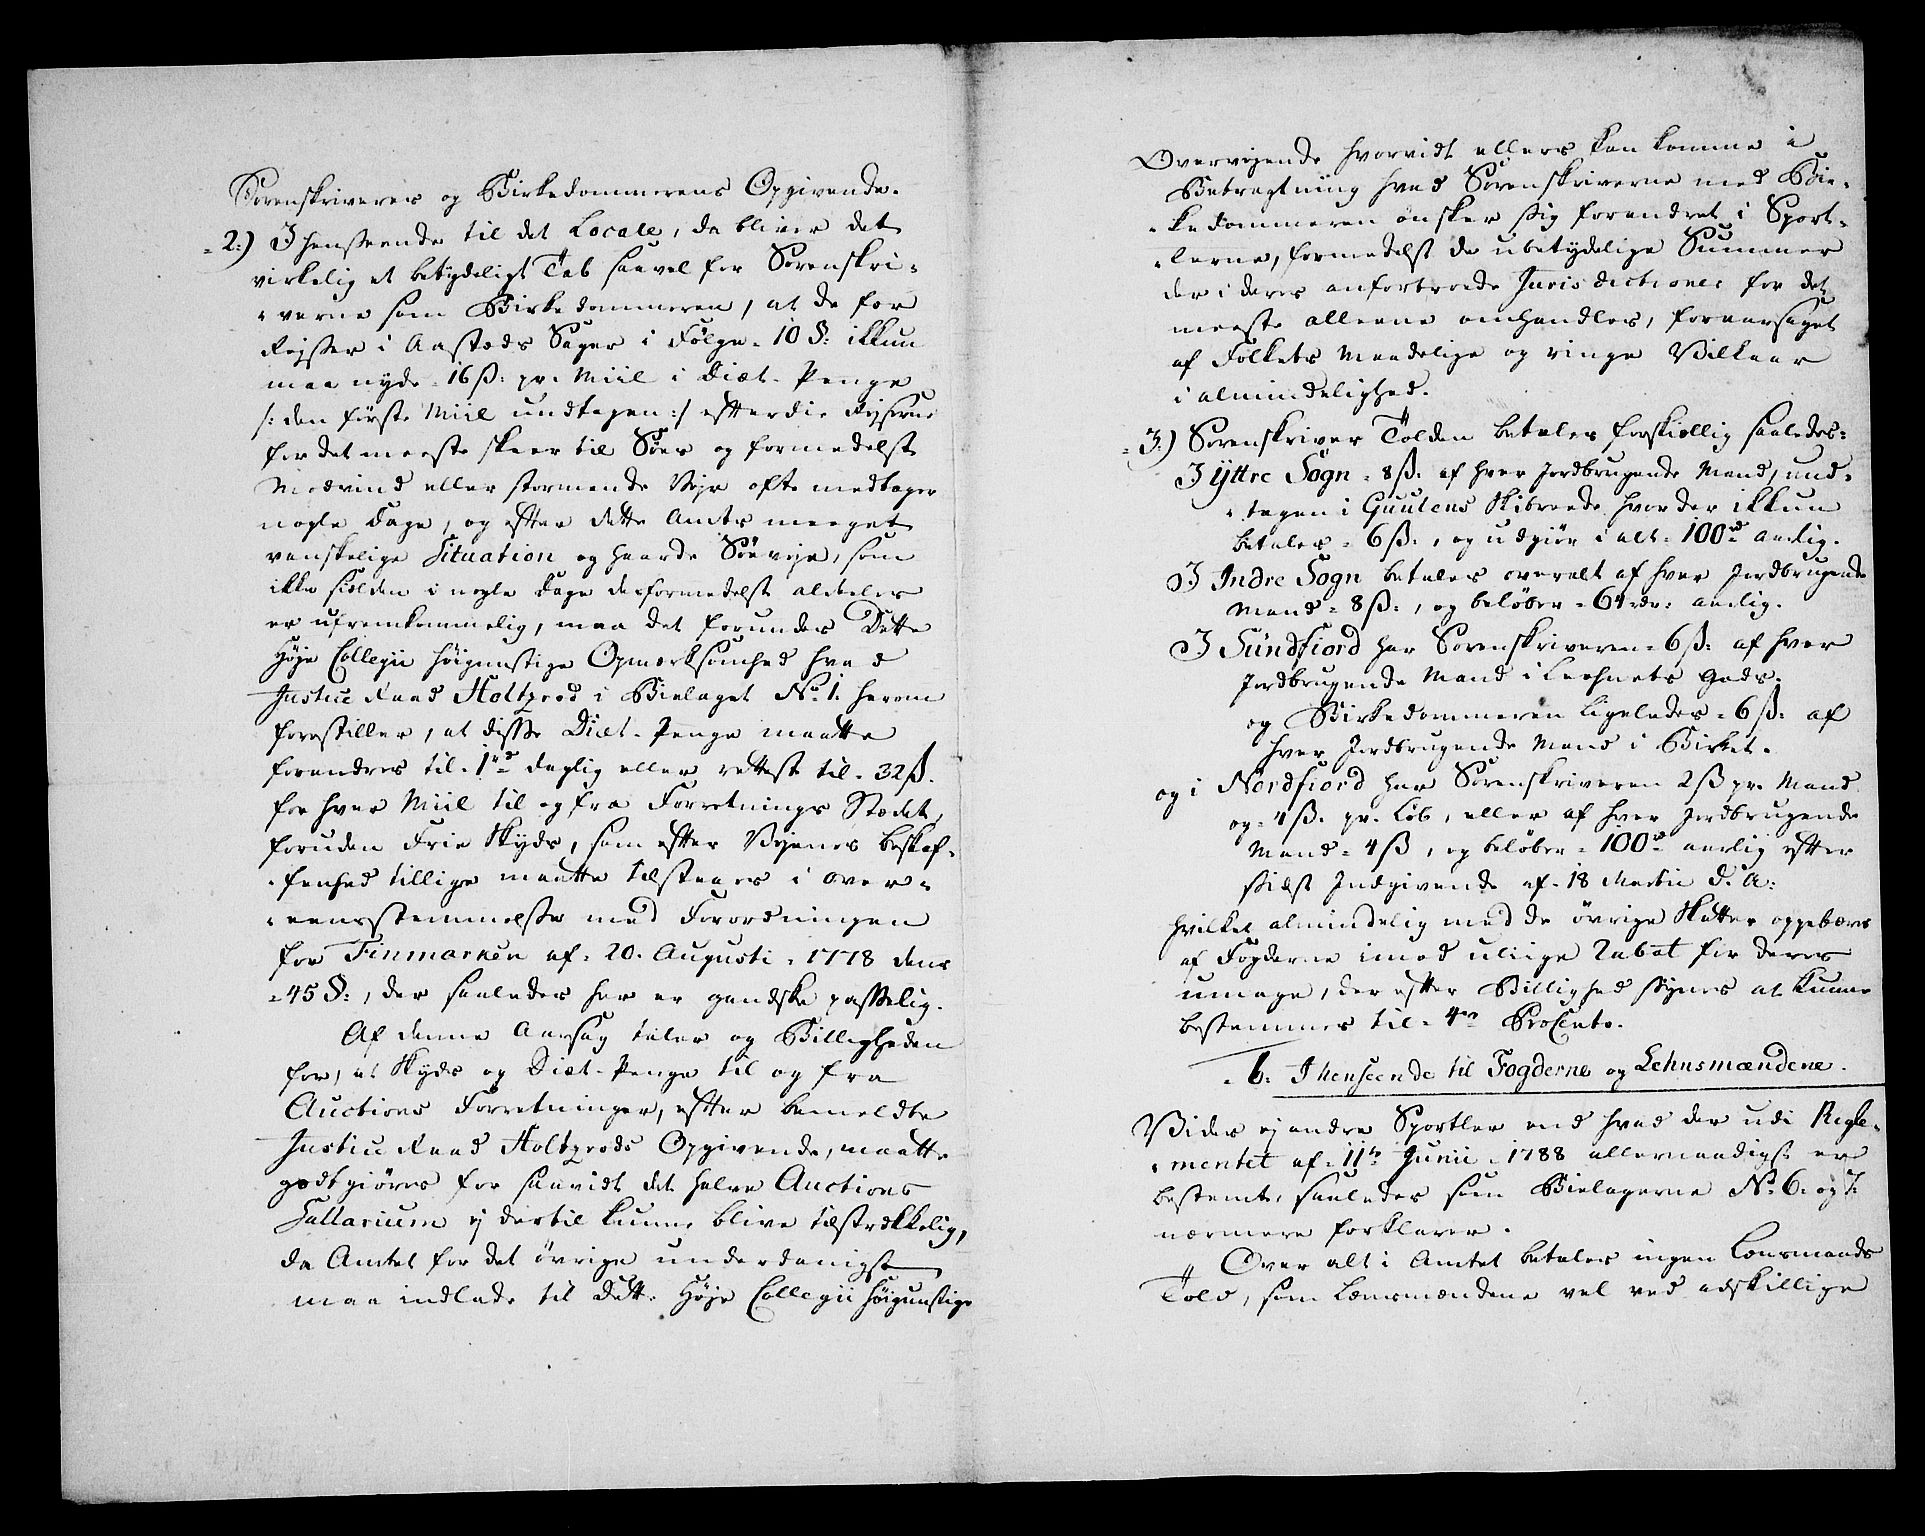 Sorenskriveres og Birkedommerens Opgivende.
2.) I henseende til det Locale, da bliver det
virkelig et betydeligt Tab saavel for Sorenskri-
verne som Birkedommeren, at de for
Rejser i Aasteds Sager i Følge 10 §: ikkun
maa nyde 16 ß: pr. Miil i Diæt-Penge
/: den første Miil undtagen :/ efterdi Rejserne
for det meeste skeer til Søes og formedelst
Modvind eller stormende Vejr ofte medtager
nogle Dage, og efter dette Amts meeget
vanskelige Situation og haarde Søeveje, som
ikke sielden i nogle Dage desformedelst aldeles
er ufremkommelig, maa det forundes Dette
Høje Collegii høigunstige Opmærksomhed hvad
Justice Raad Holtzrod i Bielaget No. 1. herom
forestiller, at disse Diæt-Penge maatte
forandres til 1 rd daglig eller rettest til 32 ß.
for hver Miil til og fra Forretnings Stædet,
foruden Frie Skyds, som efter Vejenes beskaf-
fenhed tillige maatte tilstaaes i over-
eensstemmelse med Forordningen
for Finmarken af 20. Augusti 1778 dens
45 §:, der saaledes her er gandske passelig.
Af denne Aarsag taler og Billigheden
for, at Skyds og Diæt-Penge til og fra
Auctions Forretninger, efter bemeldte
Justice Raad Holtzrods Opgivende, maatte
godtgiøres for saavidt det halve Auctions
Sallarium ej dertil kunne blive tilstrækkelig,
da Amtet for det øvrige underdanigst
maa indlade til Dette Høje Collegii høigunstige
Overvejende hvorvidt ellers kan komme i
Betragtning hvad Sorenskriverne med Bir-
kedommeren ønsker sig forandret i Sport-
lerne, formedelst de ubetydelige Summer
der i deres anfortroede Jurisdictioner for det
meeste alleene omhandles, foraarsaget
af Folkets maadelige og ringe Vilkaar
i almindelighed.
3.) Sorenskriver Tolden betales forskiellig saaledes:
I Yttre Sogn 8 ß. af hver Jordbrugende Mand, und-
tagen i Guulens Skibrede hvor der ikkun
betales 6 ß:, og udgiør i alt 100 rd aarlig.
I Indre Sogn betales overalt af hver Jordbrugende
Mand 8 ß:, og beløber 64 rdr: aarlig.
I Sündfiord har Sorenskriveren 6 ß: af hver
Jordbrugende Mand i Leehnets Gods.
og Birkedommeren ligeledes 6 ß: af
hver Jordbrugende Mand i Birket.
og i Nordfiord har Sorenskriveren 2 ß pr. Mand
og 1 ß. pr. Løb, eller af hver Jordbrugende
Mand 4 ß, og beløber 100 rd aarlig efter
sidst Indgivende af 18 Martii d. A:
hvilket almindelig med de øvrige Skatter oppebæres
af Fogderne imod uliige Rabat for deres
umage, der efter Billighed synes at kunne
bestemmes til 4 re ProCento.
b. I henseende til Fogderne og Lehnsmændene.
Vides ej andre Sportler end hvad der udi Regle-
mentet af 11te Junii 1788 allernaadigst er
bestemt, saaledes som Bielagerne No. 6. og 7.
nærmere forklarer.
Over alt i Amtet betales ingen Lensmands
Told, som Lænsmændene vel ved adskillige